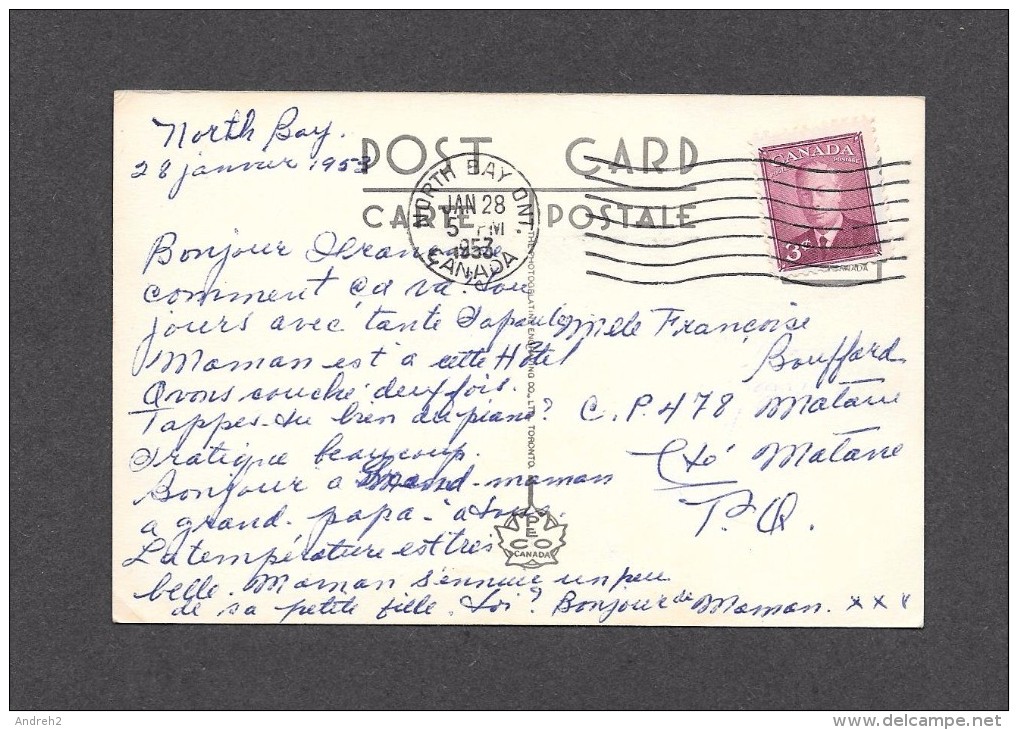 North Bay.
28 janvier 1953
POST CARD
CARTE POSTALE
NORTH BAY ONT.
JAN 28
5 PM
1953
CANADA
CANADA
POSTAGE
3¢
CANADA
Bonjour
comment ça va. Tou
jours avec tante
Maman est à cette Hôtel
Avons couché deux fois.
Tappes-tu bien du piano?
Pratique beaucoup.
Bonjour à Grand-maman
a grand-papa - a tous.
La température est très
belle. Maman s'ennuie un peu
de sa petite fille. Toi? Bonjour de Maman. xxx
Mlle Françoise
Bouffard
C.P. 478 Matane
Cté Matane
P.Q.
THE PHOTOGELATINE ENGRAVING CO., LTD. TORONTO.
PECO
CANADA
Andreh2
www.delcampe.net